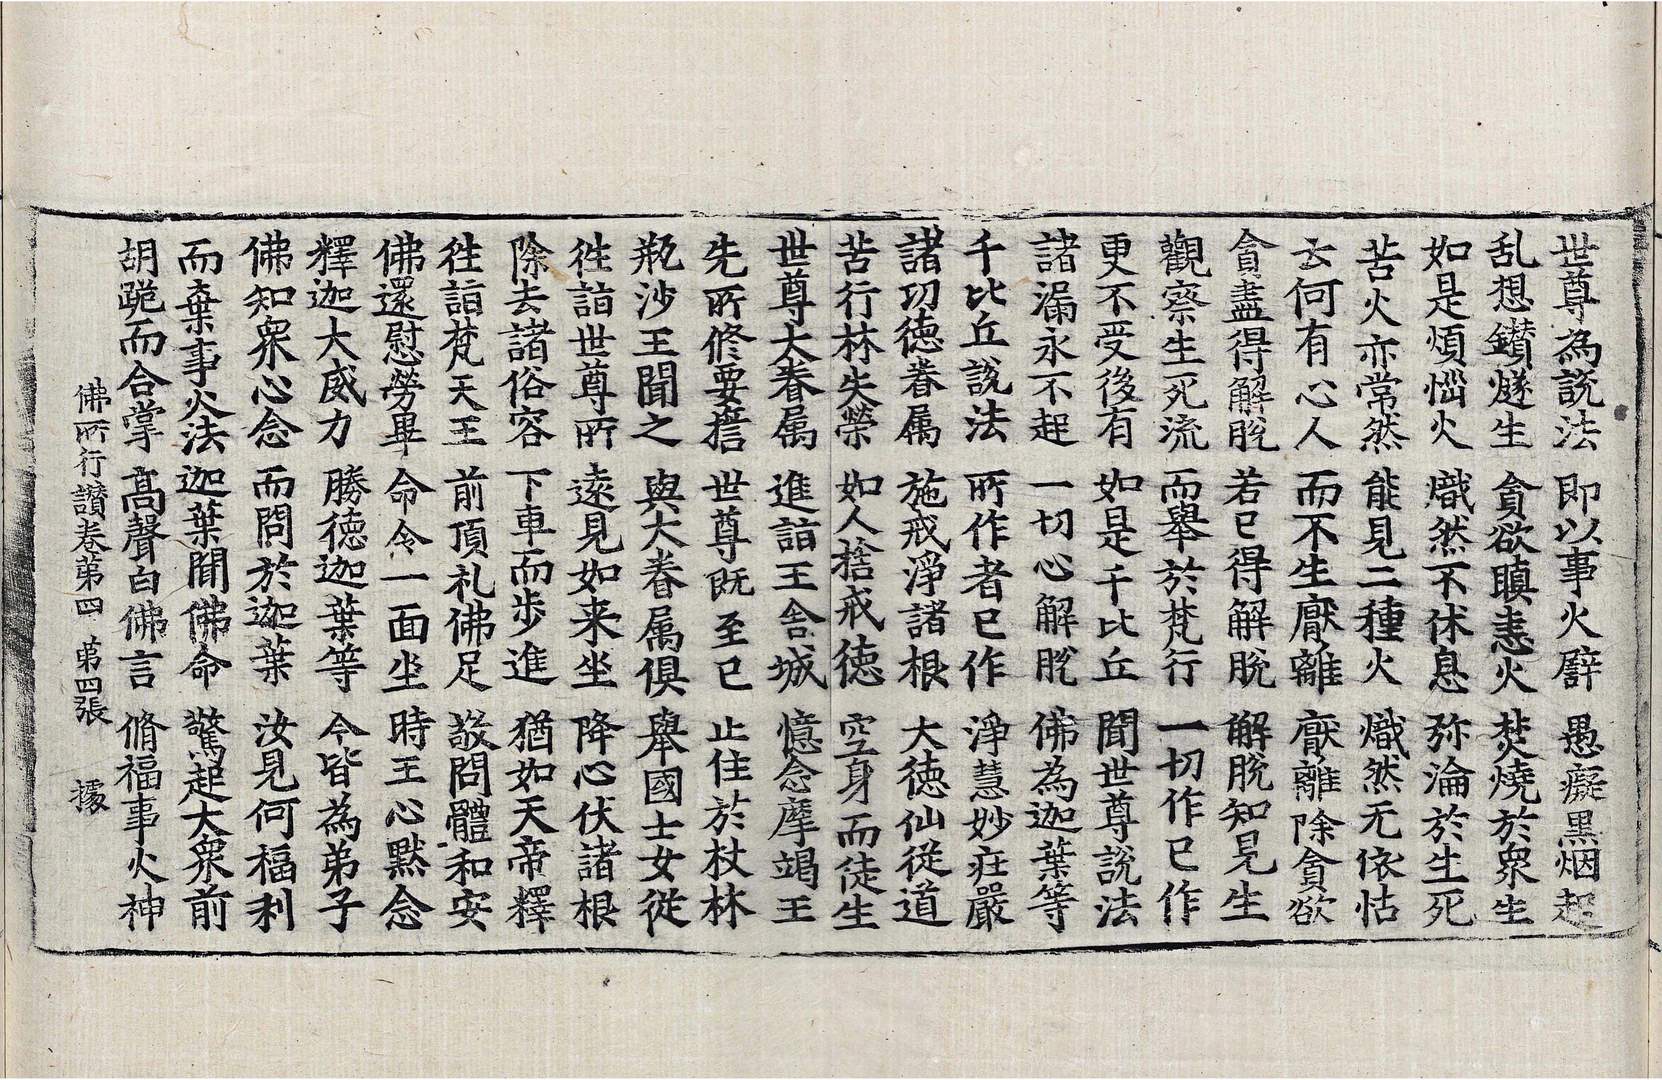 世尊為說法 即以事火譬 愚癡黑烟起
乱想鑚燧生 貪欲瞋恚火 焚燒於衆生
如是煩惱火 熾然不休息 弥淪於生死
苦火亦常然 能見二種火 熾然无依怙
云何有心人 而不生厭離 厭離除貪欲
貪盡得解脫 若已得解脫 解脫知見生
觀察生死流 而舉於梵行 一切作已作
更不受後有 如是千比丘 聞世尊說法
諸漏永不起 一切心解脫 佛為迦葉等
千比丘說法 所作者已作 淨慧妙㽵嚴
諸功德眷属 施戒淨諸根 大德仙從道
苦行林失榮 如人捨戒德 空身而徒生
世尊大眷属 進詣王舍城 憶念摩竭王
先所修要擔 世尊旣至已 止住於杖林
瓶沙王聞之 與大眷属俱 舉國士女從
徃詣世尊所 遠見如来坐 降心伏諸根
除去諸俗容 下車而步進 猶如天帝釋
徃詣梵天王 前頂礼佛足 敬問體和安
佛還慰勞畢 命令一面坐 時王心黙念
釋迦大威力 勝德迦葉等 今皆為弟子
佛知衆心念 而問於迦葉 汝見何福利
而棄事火法 迦葉聞佛命 驚起大衆前
胡跪而合掌 高聲白佛言 脩福事火神
佛所行讃卷第四 第四張 據